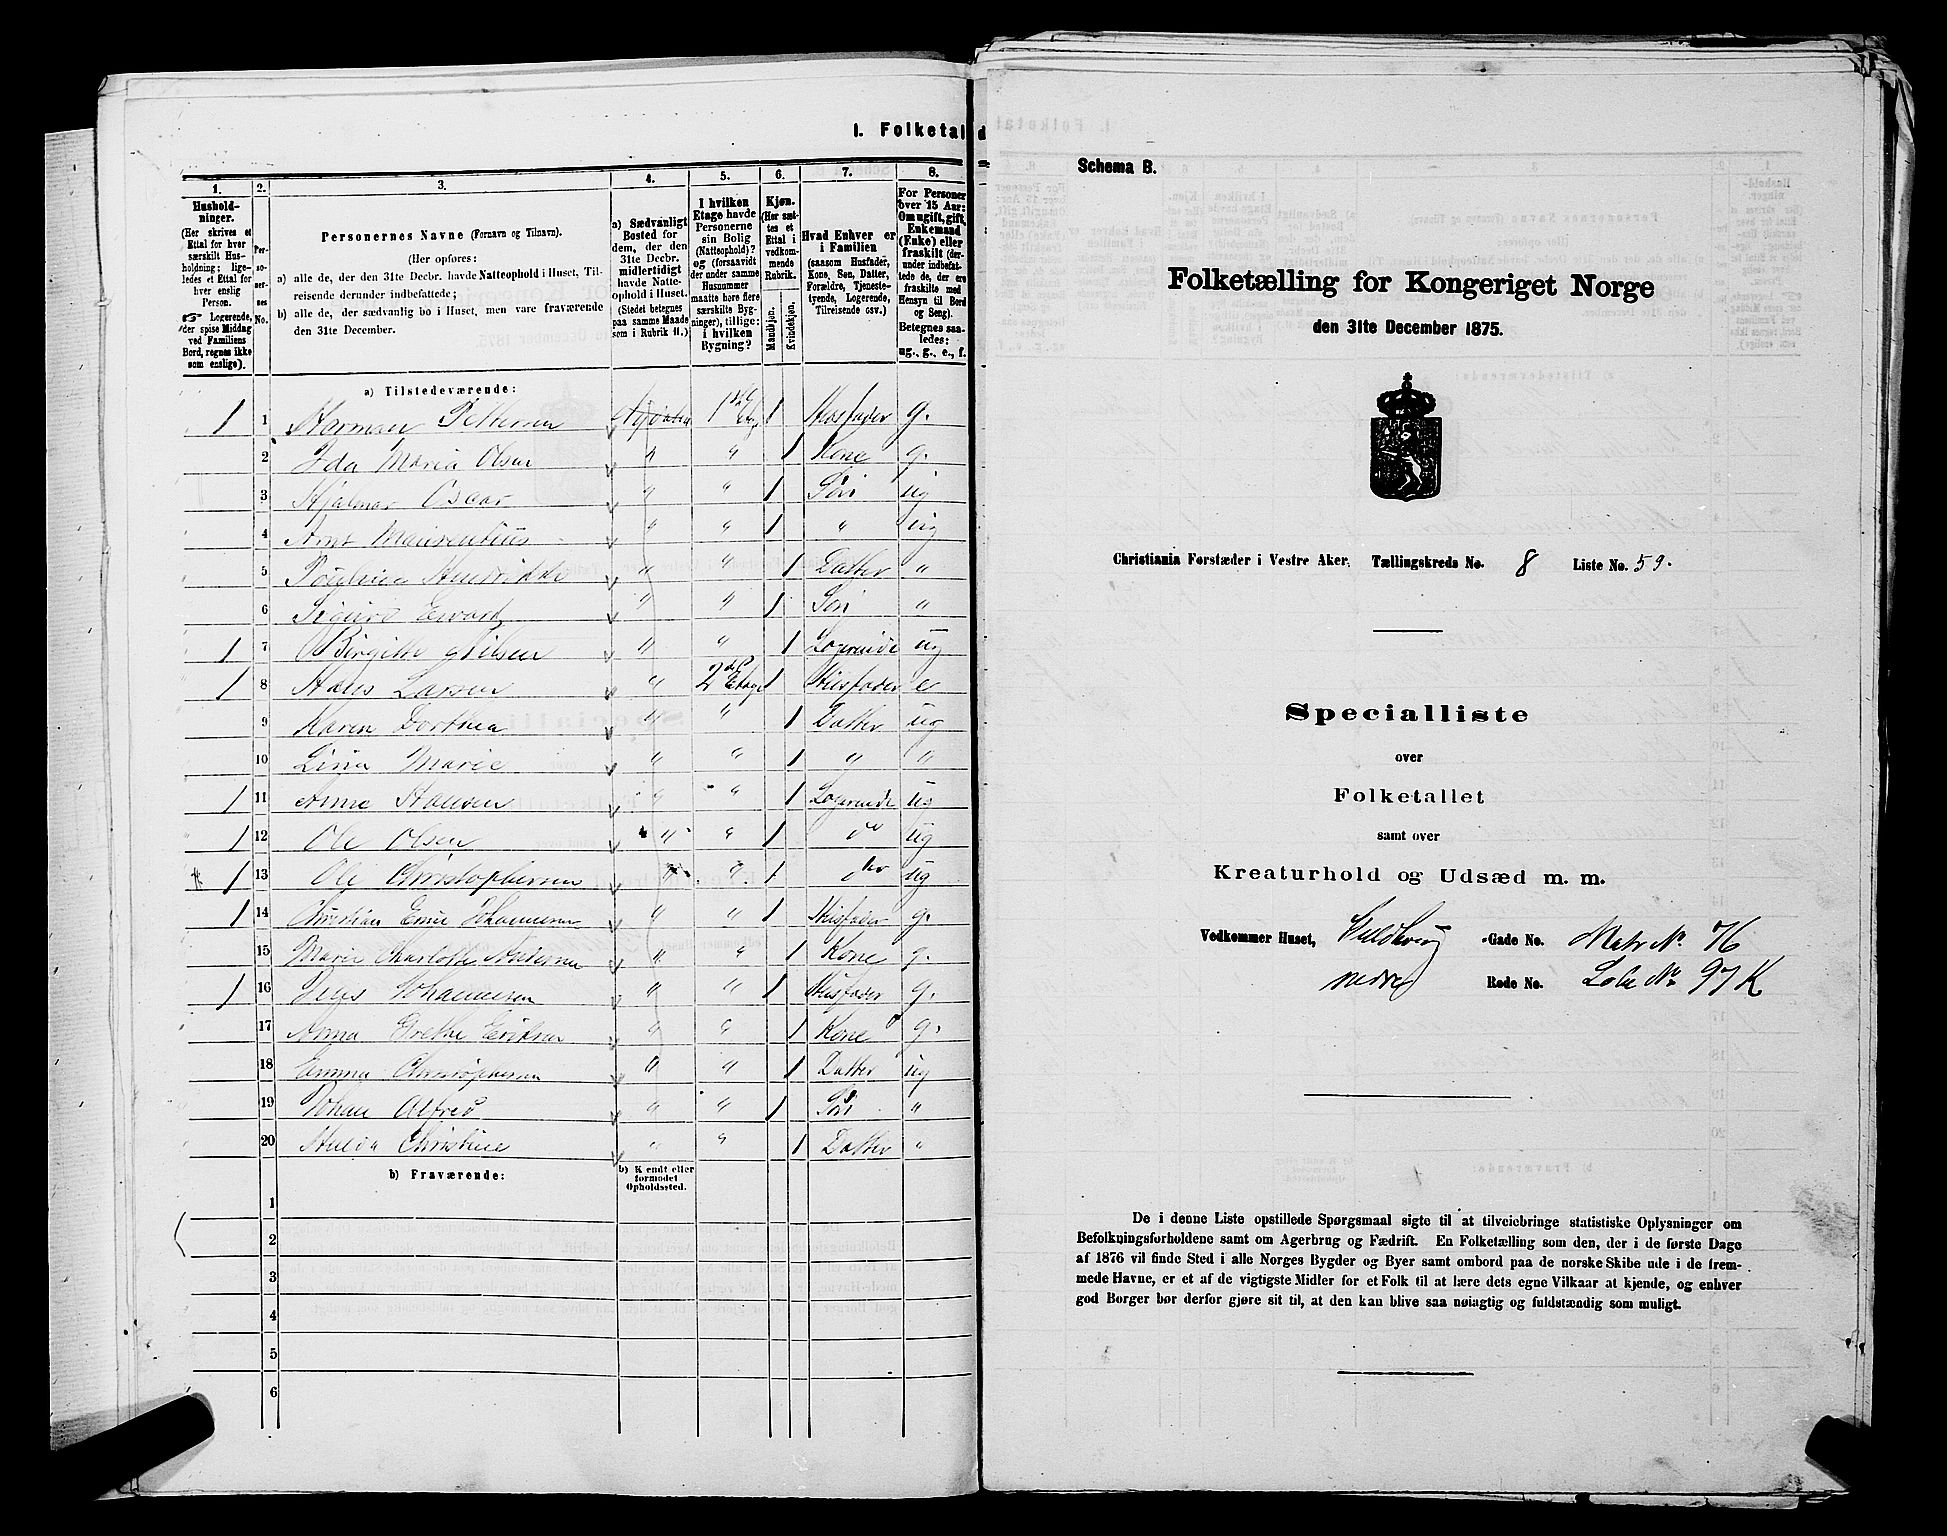 I. Folketal
1. 2. 3. 4. 5. 6. 7. 8.
Hushold-
ninger.
(Her skrives et
Ettal for hver
særskilt Hus-
holdning; lige-
ledes et Ettal for
hver enslig
Person.
☞ Logerende,
der spise Middag
ved Familiens
Bord, regnes ikke
som enslige).
Per-
so-
ner-
nes
No.
Personernes Navne (Fornavn og Tilnavn).
(Her opføres:
a) alle de, der den 31te Decbr. havde Natteophold i Huset, Til-
reisende derunder indbefattede;
b) alle de, der sædvanlig bo i Huset, men vare fraværende
den 31te December.
a) Sædvanligt
Bosted for
dem, der den
31te Decbr.
midlertidigt
havde Natte-
ophold i Huset.
(Stedet betegnes
paa samme Maade
som i Rubrik 11.)
I hvilken
Etage havde
Personerne
sin Bolig
(Natteophold)?
og (forsaavidt
der under samme
Husnummer
maatte høre flere
særskilte Byg-
ninger), tillige:
i hvilken
Bygning?
Kjøn.
(Her sæt-
tes et
Ettal i
vedkom-
mende
Rubrik.
Mandkjøn.
Kvindekjøn.
Hvad Enhver er
i Familien
(saasom Husfader,
Kone, Søn, Datter,
Forældre, Tjeneste-
tyende, Logerende,
Tilreisende osv.)
For Personer
over 15 Aar:
Om ugift, gift,
Enkemand
(Enke) eller
fraskilt (der-
under indbefat-
tede de, der ere
fraskilte med
Hensyn til Bord
og Seng).
Betegnes saa-
ledes:
ug., g., e., f.
a) Tilstedeværende:
1 1 Pettersen 1ste Etag 1 Husfader g.
2 Ida Maria Olsen " " 1 Kone g.
3 Hjalmar Oscar " " 1 Søn ug
4 " " 1 " ug
5 " " 1 Datter "
6 Sigurd " " 1 Søn "
1 7 Birgitte Nilsen " " 1 Logerende ug
1 8 Hans Larsen " 2den Etage 1 Husfader e
9 Karen Dorthea " " 1 Datter ug
10 Lina Marie " " 1 " "
1 11 Anne Hansen " " 1 Logerende ug
1 12 Ole Olsen " " 1 do ug
1 13 Ole Christophersen " " 1 do ug
1 14 Christian Johannesen " " 1 Husfader g.
15 Marie Charlotte " " 1 Kone g.
1 16 Jens Johannesen " " 1 Husfader g.
17 Anna Grethe Eriksen " " 1 Kone g.
18 Emma Christophersen " " 1 Datter ug
19 Johan Alfred " " 1 Søn "
20 Hulda Christine " " 1 Datter "
b) Fraværende:
b) Kjendt eller
formodet
Opholdssted.
1
2
3
4
5
6
Schema B.
Folketælling for Kongeriget Norge
den 31te December 1875.
Christiania Forstæder i Vestre Aker. Tællingskreds No. 8 Liste No. 59.
Specialliste
over
Folketallet
samt over
Kreaturhold og Udsæd m. m.
Vedkommer Huset, Gade No. Matr No. 76
nedre Rode No. Lobe No 97 K
De i denne Liste opstillede Spørgsmaal sigte til at tilveiebringe statistiske Oplysninger om
Befolkningsforholdene samt om Agerbrug og Fædrift. En Folketælling som den, der i de første Dage
af 1876 vil finde Sted i alle Norges Bygder og Byer samt ombord paa de norske Skibe ude i de frem-
mede Havne, er et af de vigtigste Midler for et Folk til at lære dets egne Vilkaar at kjende, og enhver
god Borger bør derfor gjøre sit til, at den kan blive saa nøiagtig og fuldstændig som muligt.